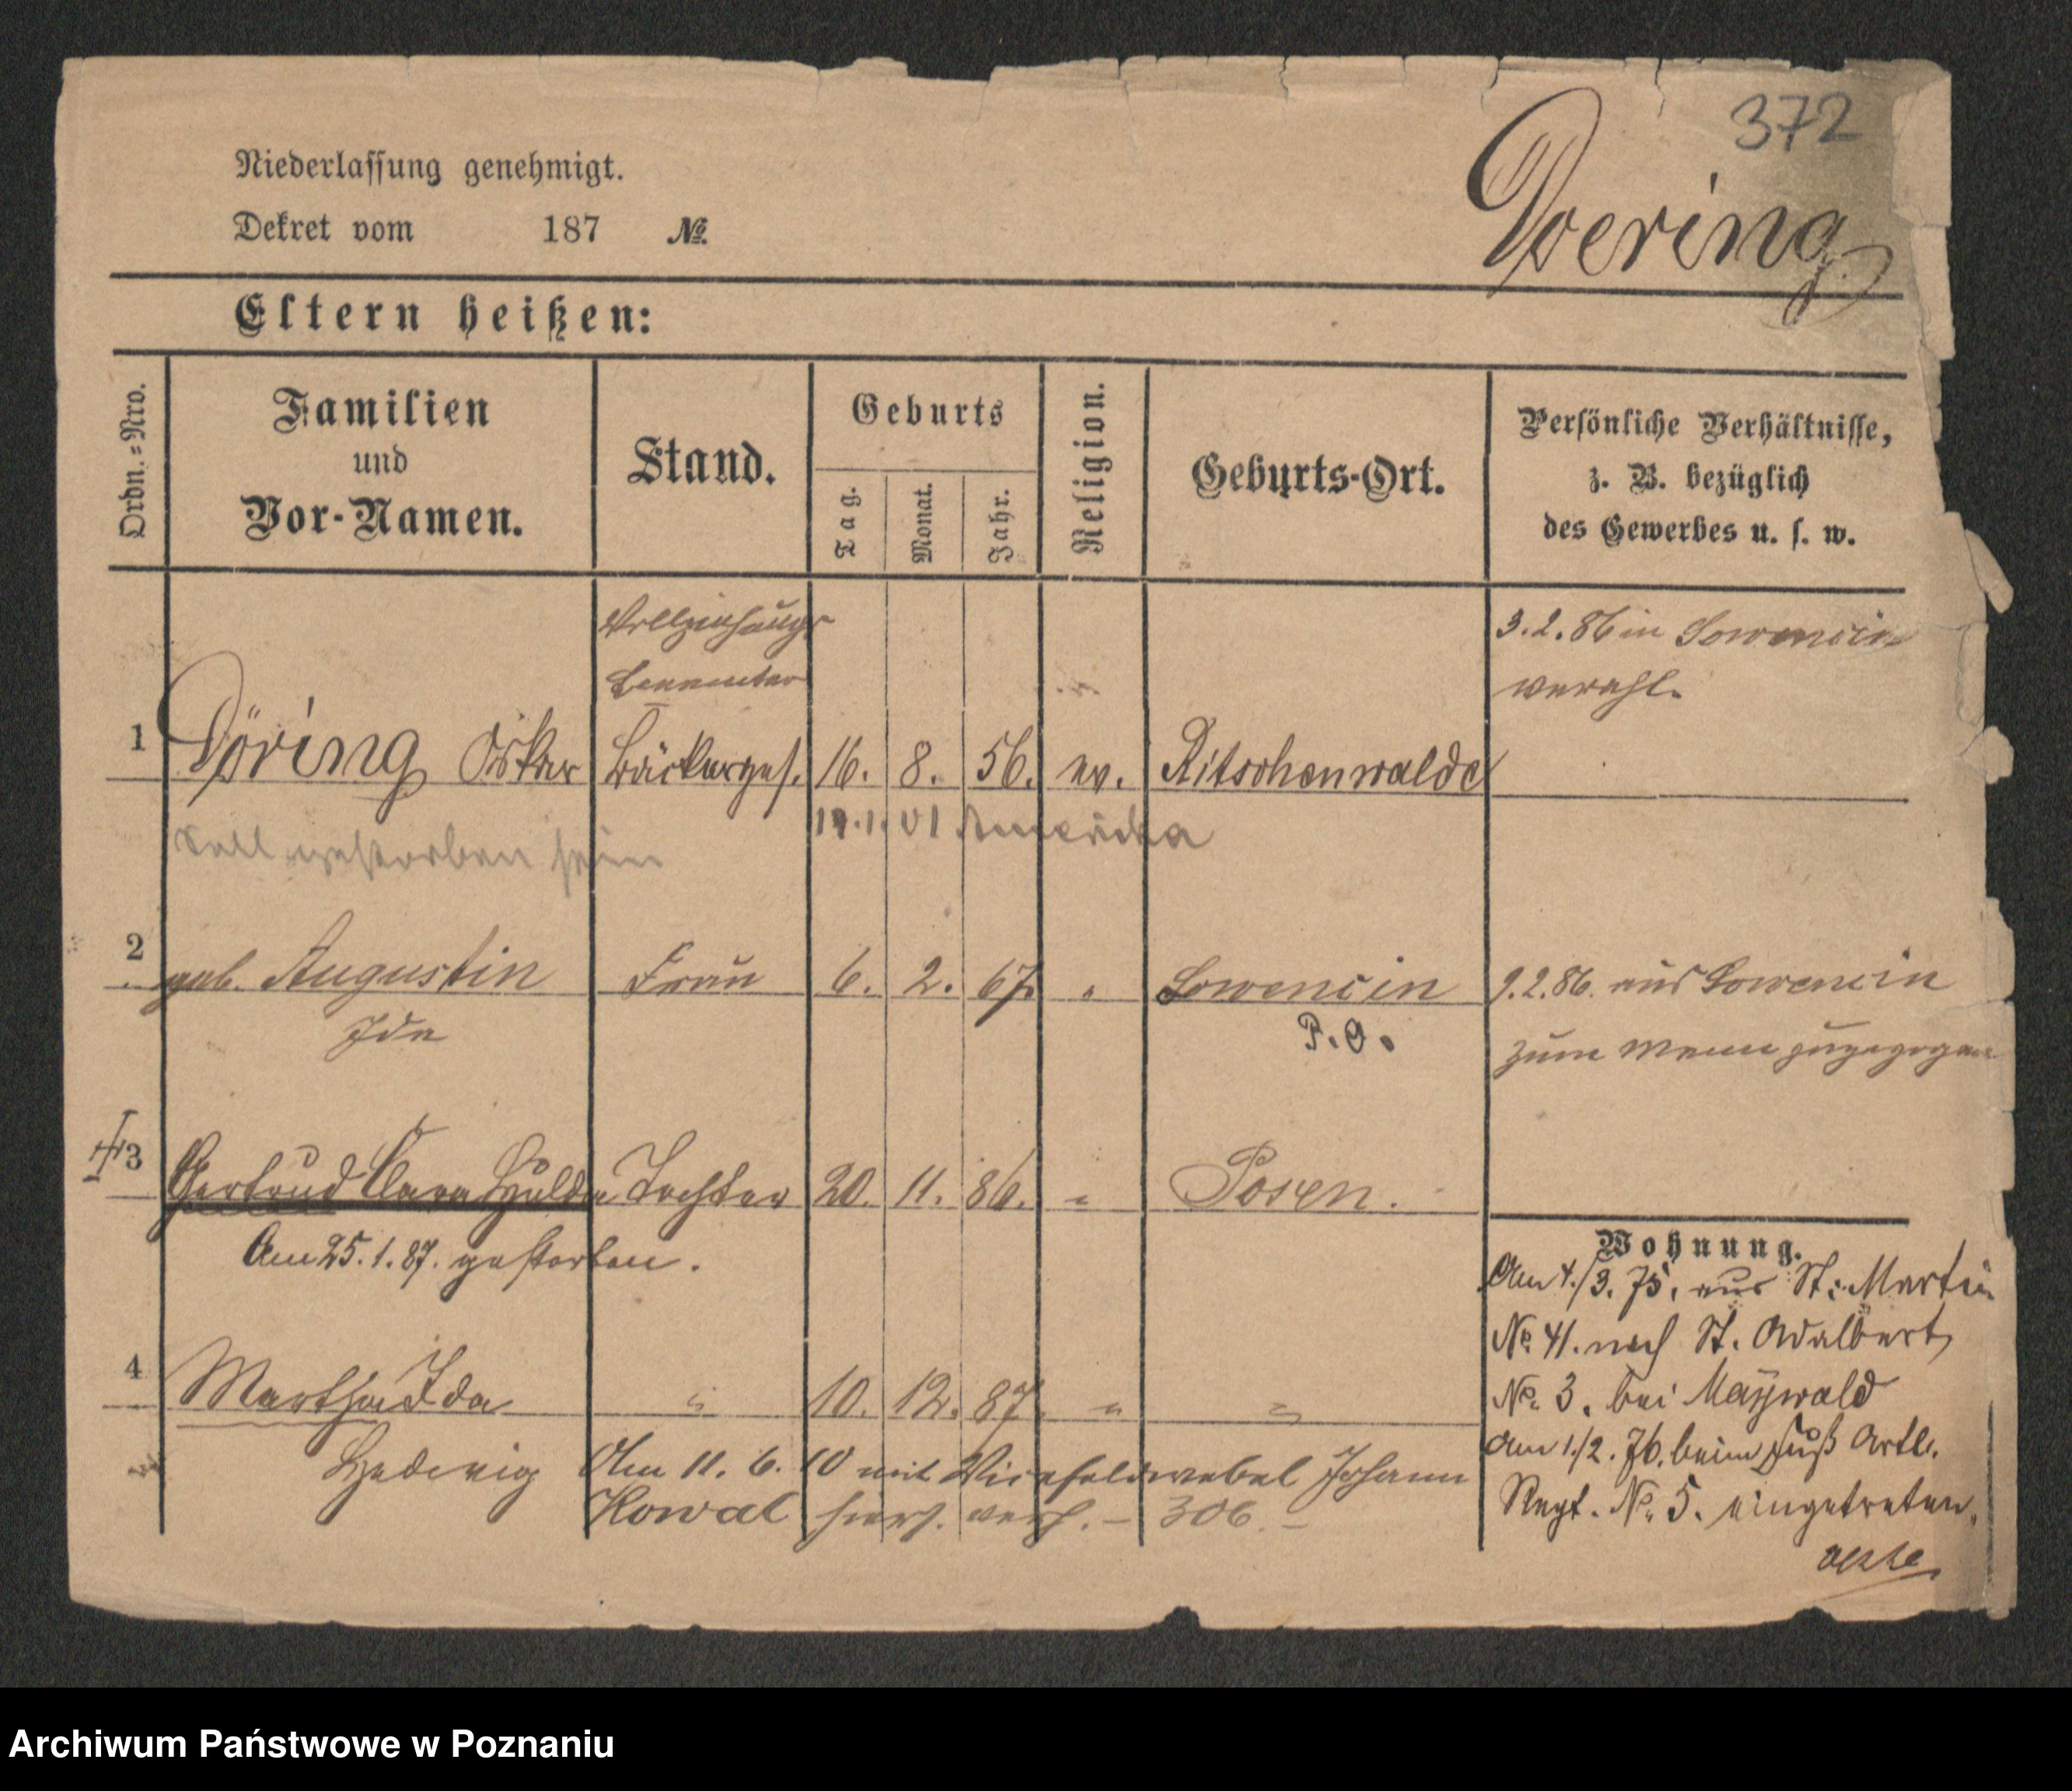 372
Doering
Niederlassung genehmigt.
Dekret vom 187 №
Eltern heißen:
Ordn.-Nro.
Familien
und
Vor-Namen.
Stand.
Geburts
Tag. Monat. Jahr.
Religion.
Geburts-Ort.
Persönliche Verhältnisse,
z. B. bezüglich
des Gewerbes u. s. w.
Vollziehungs
beamter
3.2.86 in Lowencin
verehl.
1 Döring Oskar Bäckerges. 16. 8. 56. ev. Ritschenwalde
soll gestorben sein
1.01 Amerika
2 geb. Augustin Frau 6. 2. 67. " Lowencin 9.2.86. aus Lowencin
Ida P.O. zum Mann zugezogen
3 Gertrud Clara Hulda Tochter 20. 11. 86. " Posen.
Am 25.1.87. gestorben.
4 Martha Ida " 10. 12. 87. " "
Hedwig Am 11. 6. 10 mit Vicefeldwebel Johann
Kowal hiers. verh. – 306. –
Wohnung.
Am 4./3. 75. aus St. Martin
№ 41. nach St. Adalbert
№ 3. bei Maywald
Am 1./2. 76. beim Fuß Artl.
Regt. № 5. eingetreten.
Archiwum Państwowe w Poznaniu